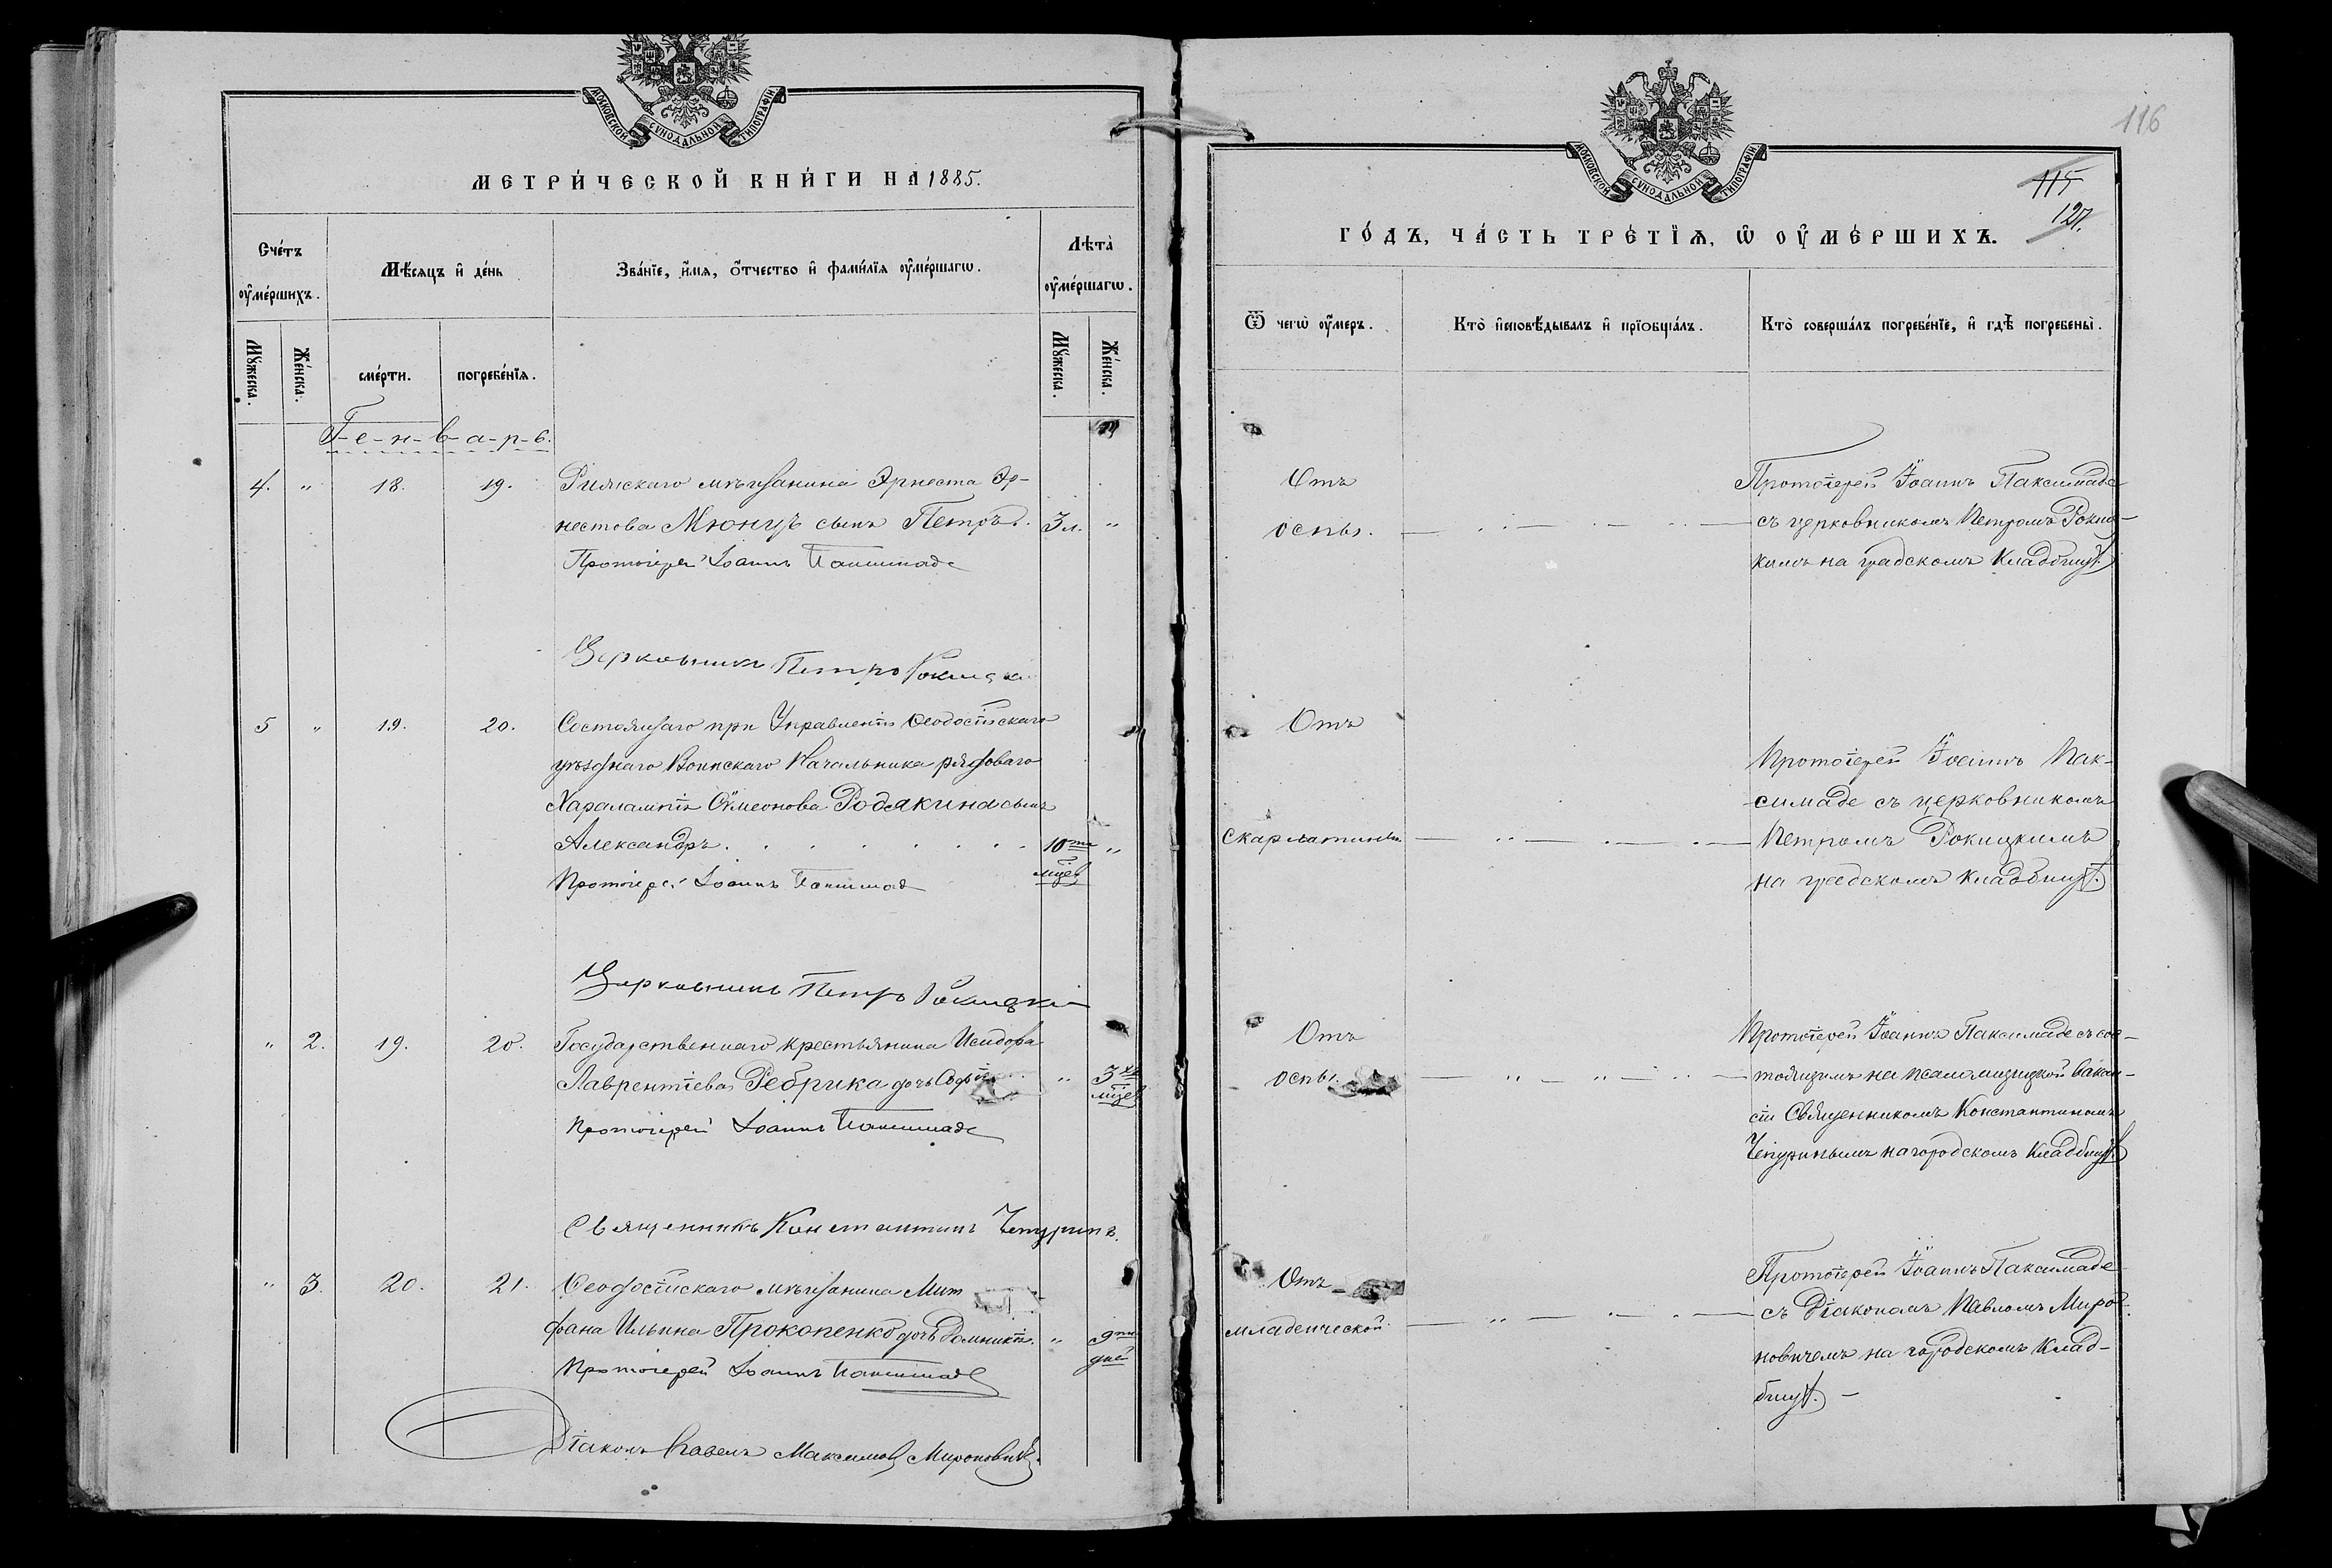 МОСКОВСКОЙ СѴНОДАЛЬНОЙ ТИПОГРАФІИ
МЕТРИ́ЧЕСКОЙ КНИ́ГИ НА 1885.
Сче́тъ ᲂу҆ме́ршихъ.
Мѣ́сяцъ и҆ де́нь
Зва́нїе, и҆́мя, ѻ҆́тчество и҆ фами́лїя ᲂу҆ме́ршагѡ.
Лѣ́та ᲂу҆ме́ршагѡ.
Мꙋ́жеска.
Же́нска.
сме́рти.
погребе́нїя.
Мꙋ́жеска.
Же́нска.
Г-е-н-в-а-р-ь.
4. " 18. 19. Рижскаго мѣщанина Эрнеста Эр-
нестова Мюнцъ сынъ Петръ. 3 л. "
Протоіерей Іоаннъ Паксимаде
Церковникъ Петръ Рокицкій
5 " 19. 20. Состоящаго при Управленіи Ѳеодосійскаго
уѣзднаго Воинскаго Начальника рядоваго
Харалампія Сѵмеонова Родякина сынъ
Александръ. 10ти "
мцев
Протоіерей Іоаннъ Паксимаде
Церковникъ Петръ Рокицкій
" 2. 19. 20. Государственнаго крестьянина Исидора
Лаврентіева Ребрика дочь Софія " 3хъ
мцев
Протоіерей Іоаннъ Паксимаде
Священникъ Константинъ Чепуринъ.
" 3. 20. 21. Ѳеодосійскаго мѣщанина Мит
фана Ильина Прокопенко дочь Домникія. " 9ти
дней
Протоіерей Іоаннъ Паксимаде
Діаконъ Павелъ Максимовъ Мироновичъ.
116
МОСКОВСКОЙ СѴНОДАЛЬНОЙ ТИПОГРАФІИ
115
127.
ГО́ДЪ, ЧА́СТЬ ТРЕ́ТЇѦ, Ѡ҆ ОУ҆МЕ́РШИХЪ.
Ѿ чегѡ̀ ᲂу҆́меръ.
Кто̀ и҆сповѣ́дывалъ и҆ прїобща́лъ.
Кто̀ соверша́лъ погребе́нїе, и҆ гдѣ̀ погребены̀.
Отъ
оспы.
Протоіерей Іоаннъ Паксимаде
съ церковникомъ Петромъ Рокиц-
кимъ на градскомъ Кладбищѣ.
Отъ
Скарлатины
Протоіерей Іоаннъ Пак-
симаде съ церковникомъ
Петромъ Рокицкимъ
на градскомъ кладбищѣ.
Отъ
оспы.
Протоіерей Іоаннъ Паксимаде съ сос-
тоящимъ на псаломщицкой вакан-
сіи Священникомъ Константиномъ
Чепуринымъ на городскомъ Кладбищѣ.
Отъ
младенческой
Протоіерей Іоаннъ Паксимаде
съ Діакономъ Павломъ Миро-
новичемъ на городскомъ Клад-
бищѣ. —